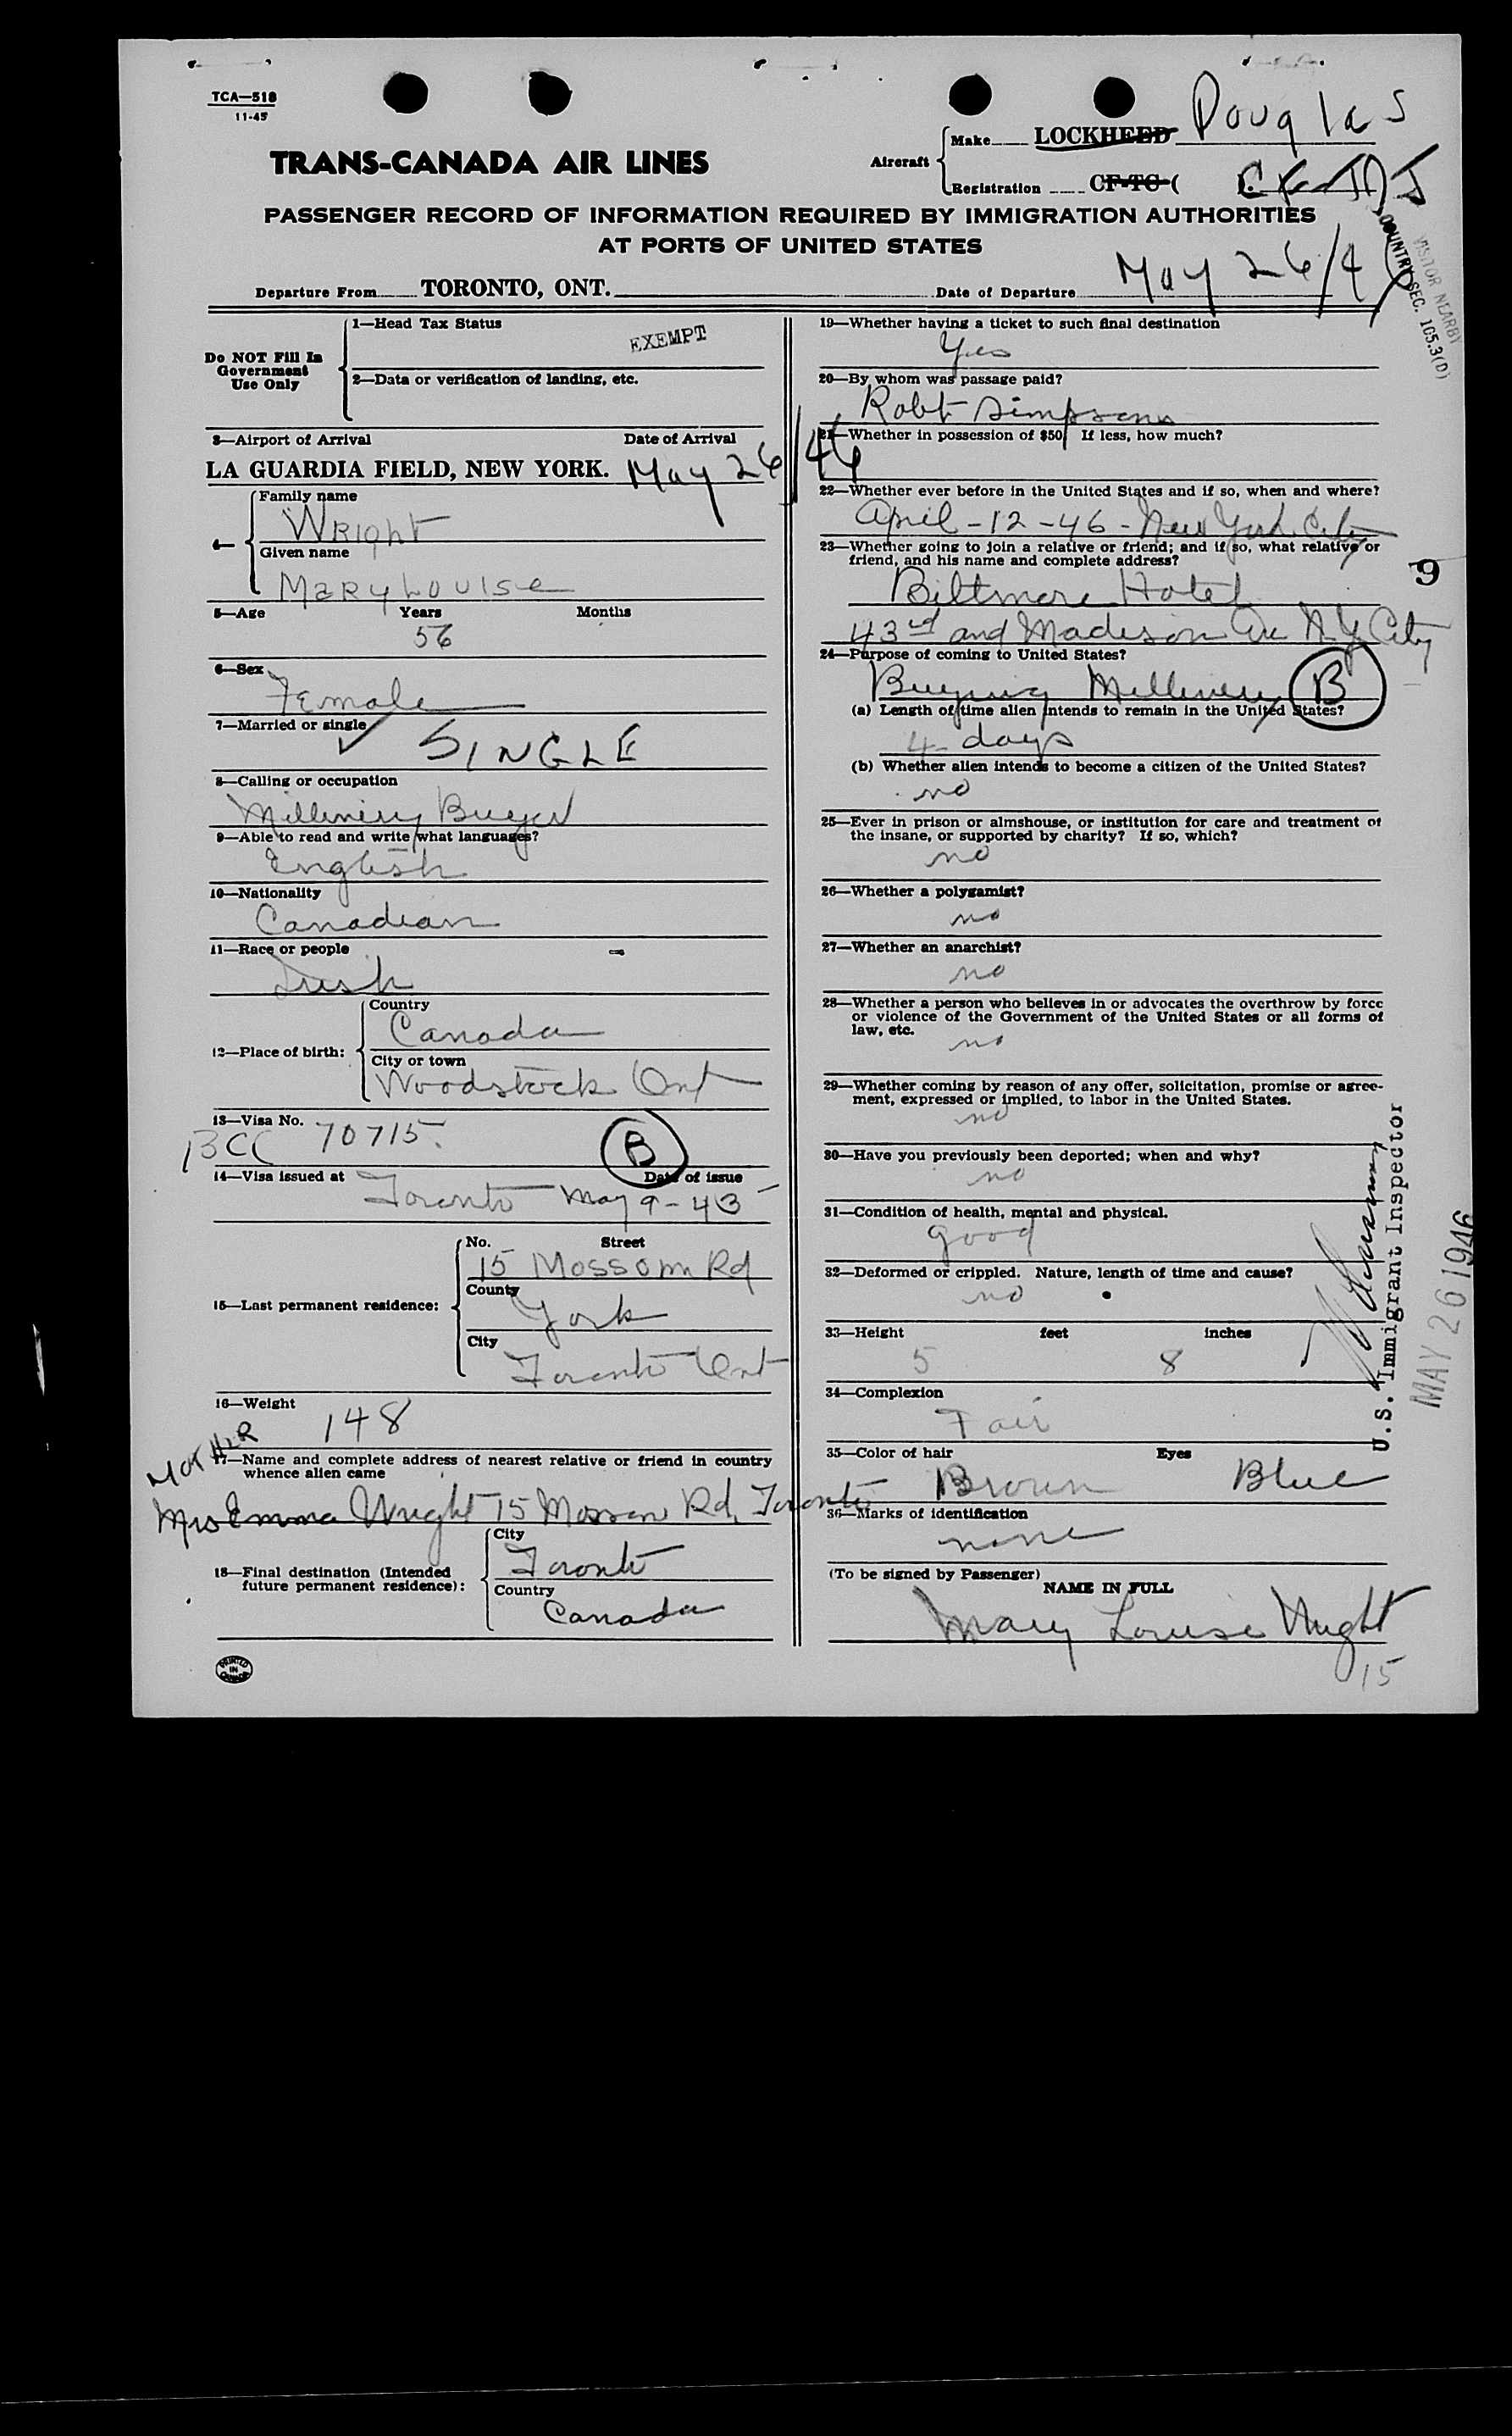 TCA—518
11-45
TRANS-CANADA AIR LINES
Aircraft
Make LOCKHEED Douglas
Registration CF-TC-(
PASSENGER RECORD OF INFORMATION REQUIRED BY IMMIGRATION AUTHORITIES
AT PORTS OF UNITED STATES
VISITOR NEARBY
COUNTRY SEC. 105.3(D)
Departure From TORONTO, ONT. Date of Departure May 26/46
Do NOT Fill In
Government
Use Only
1—Head Tax Status
EXEMPT
2—Data or verification of landing, etc.
3—Airport of Arrival Date of Arrival
LA GUARDIA FIELD, NEW YORK. May 26/46
4—
Family name
Wright
Given name
Mary Louise
5—Age Years Months
56
6—Sex
Female
7—Married or single
SINGLE
8—Calling or occupation
Millinery Buyer
9—Able to read and write what languages?
English
10—Nationality
Canadian
11—Race or people
Irish
12—Place of birth:
Country
Canada
City or town
Woodstock Ont
13—Visa No.
BCC 70715
B
14—Visa issued at Date of issue
Toronto May 9-43
15—Last permanent residence:
No. Street
15 Mossom Rd
County
York
City
Toronto Ont
16—Weight
148
MOTHER
17—Name and complete address of nearest relative or friend in country
whence alien came
Mrs Emma Wright 15 Mossom Rd, Toronto
18—Final destination (Intended
future permanent residence):
City
Toronto
Country
Canada
PRINTED
IN
CANADA
19—Whether having a ticket to such final destination
Yes
20—By whom was passage paid?
Robt Simpsons
21—Whether in possession of $50? If less, how much?
22—Whether ever before in the United States and if so, when and where?
April-12-46-New York City
23—Whether going to join a relative or friend; and if so, what relative or
friend, and his name and complete address?
9
Biltmore Hotel
43rd and Madison Ave N Y City
24—Purpose of coming to United States?
Buying Millinery B
(a) Length of time alien intends to remain in the United States?
4 days
(b) Whether alien intends to become a citizen of the United States?
no
25—Ever in prison or almshouse, or institution for care and treatment of
the insane, or supported by charity? If so, which?
no
26—Whether a polygamist?
no
27—Whether an anarchist?
no
28—Whether a person who believes in or advocates the overthrow by force
or violence of the Government of the United States or all forms of
law, etc.
no
29—Whether coming by reason of any offer, solicitation, promise or agree-
ment, expressed or implied, to labor in the United States.
no
30—Have you previously been deported; when and why?
no
31—Condition of health, mental and physical.
good
32—Deformed or crippled. Nature, length of time and cause?
no
33—Height feet inches
5 8
34—Complexion
Fair
35—Color of hair Eyes
Brown Blue
36—Marks of identification
none
(To be signed by Passenger)
NAME IN FULL
Mary Louise Wright
15
U.S. Immigrant Inspector
MAY 26 1946